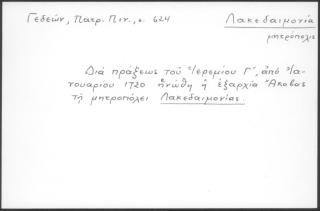 Γεδεών, Πατρ. Πιν., σ. 624
Λακεδαιμονία
μητρόπολις
Διά πράξεως τοῦ Ἱερεμίου Γ', ἀπό Ἰα-
νουαρίου 1720 ἡνώθη ἡ ἐξαρχία Ἀκοβας
τῇ μητροπόλει Λακεδαιμονίας.